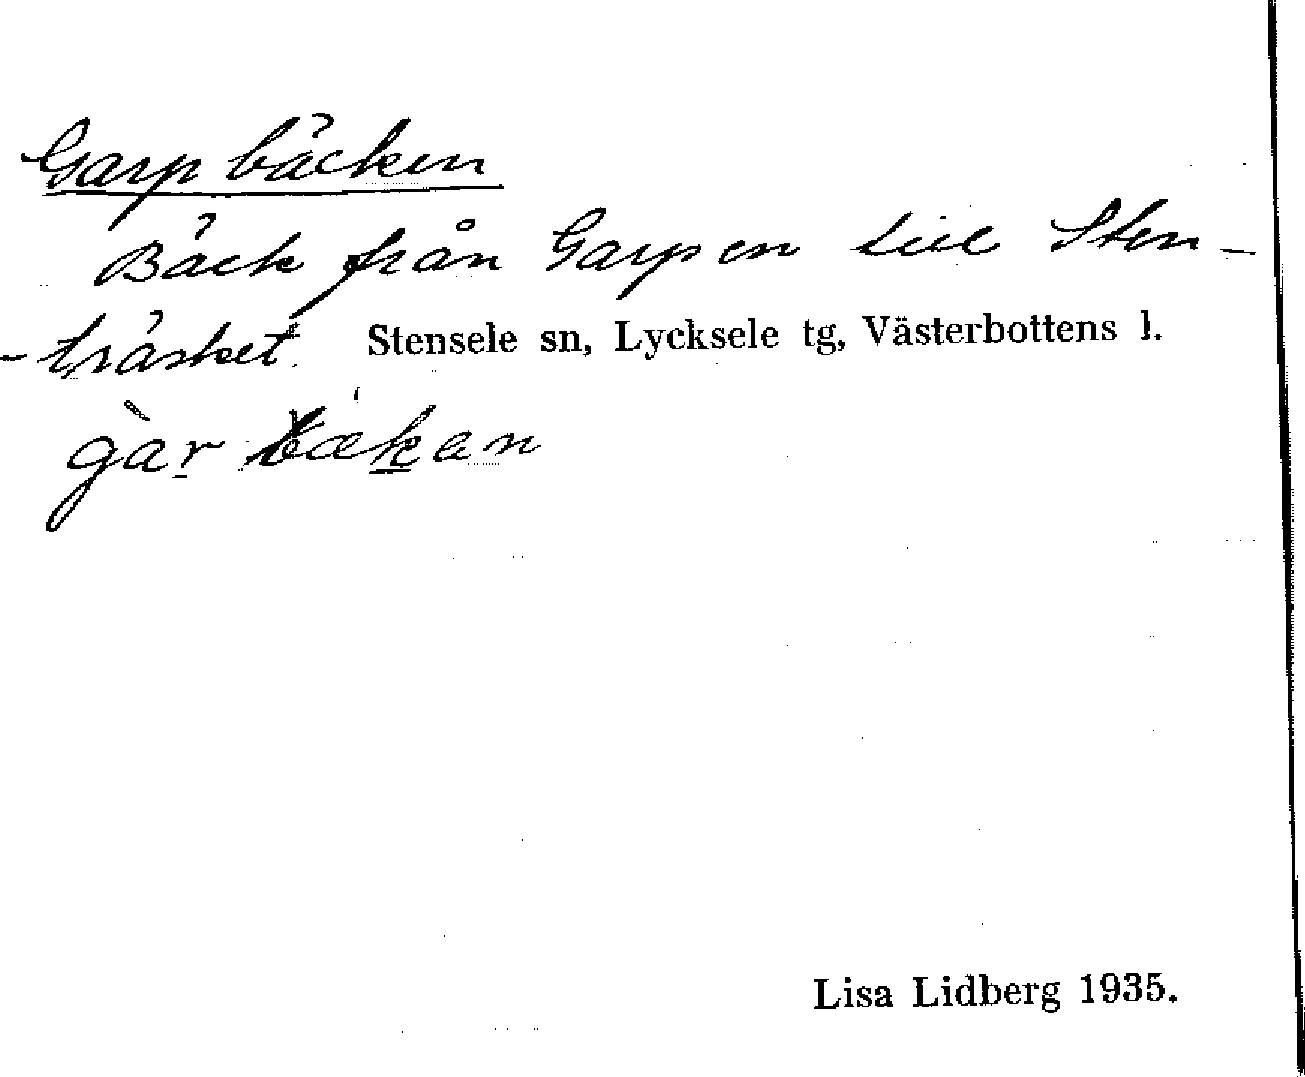 Garpbäcken
Bäck från Garpen till Sten-
-träsket. Stensele sn, Lycksele tg, Västerbottens l.
gàr bækan
Lisa Lidberg 1935.